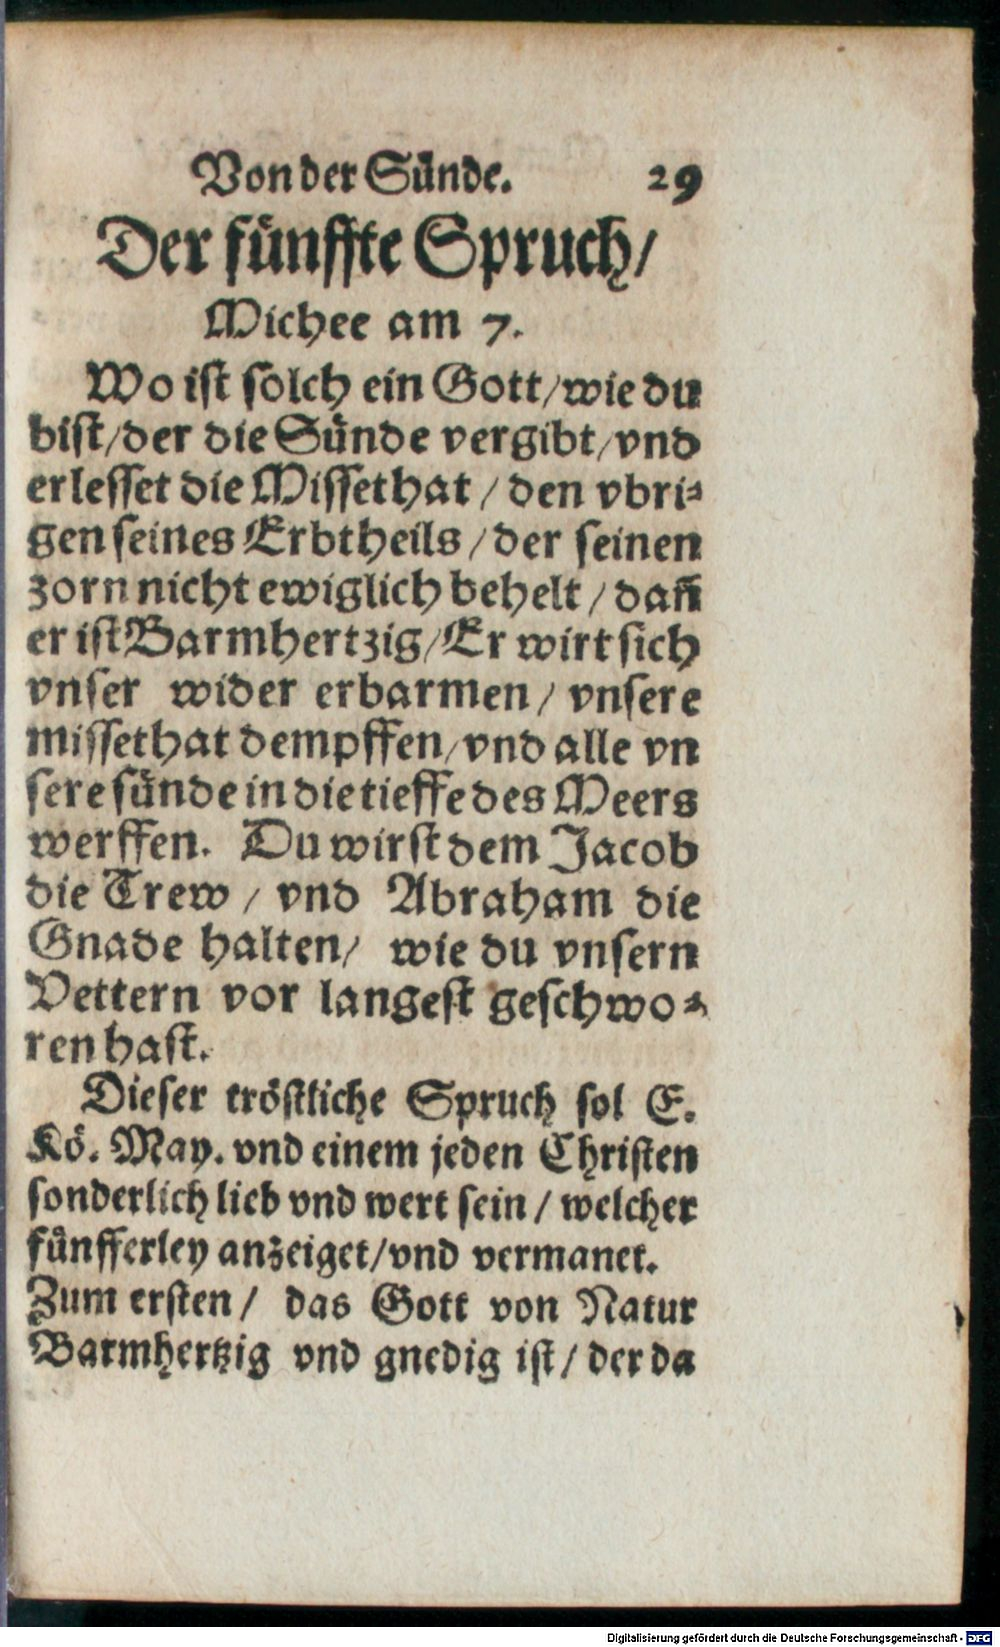 Von der Sünde. 29
Der fünffte Spruch/
Michee am 7.
Wo ist solch ein Gott/wie du
bist/der die Sünde vergibt/vnd
erlesset die Missethat/den vbri⸗
gen seines Erbtheils/der seinen
zorn nicht ewiglich behelt/dañ
er ist Barmhertzig/Er wirt sich
vnser wider erbarmen/vnsere
missethat dempffen/vnd alle vn
sere sünde in die tieffe des Meers
werffen. Du wirst dem Jacob
die Trew/vnd Abraham die
Gnade halten/ wie du vnsern
Vettern vor langest geschwo⸗
ren hast.
Dieser tröstliche Spruch sol E.
Kö. May. vnd einem jeden Christen
sonderlich lieb vnd wert sein/welcher
fünfferley anzeiget/vnd vermanet.
Zum ersten/ das Gott von Natur
Barmhertzig vnd gnedig ist/der da
Digitalisierung gefördert durch die Deutsche Forschungsgemeinschaft - DFG